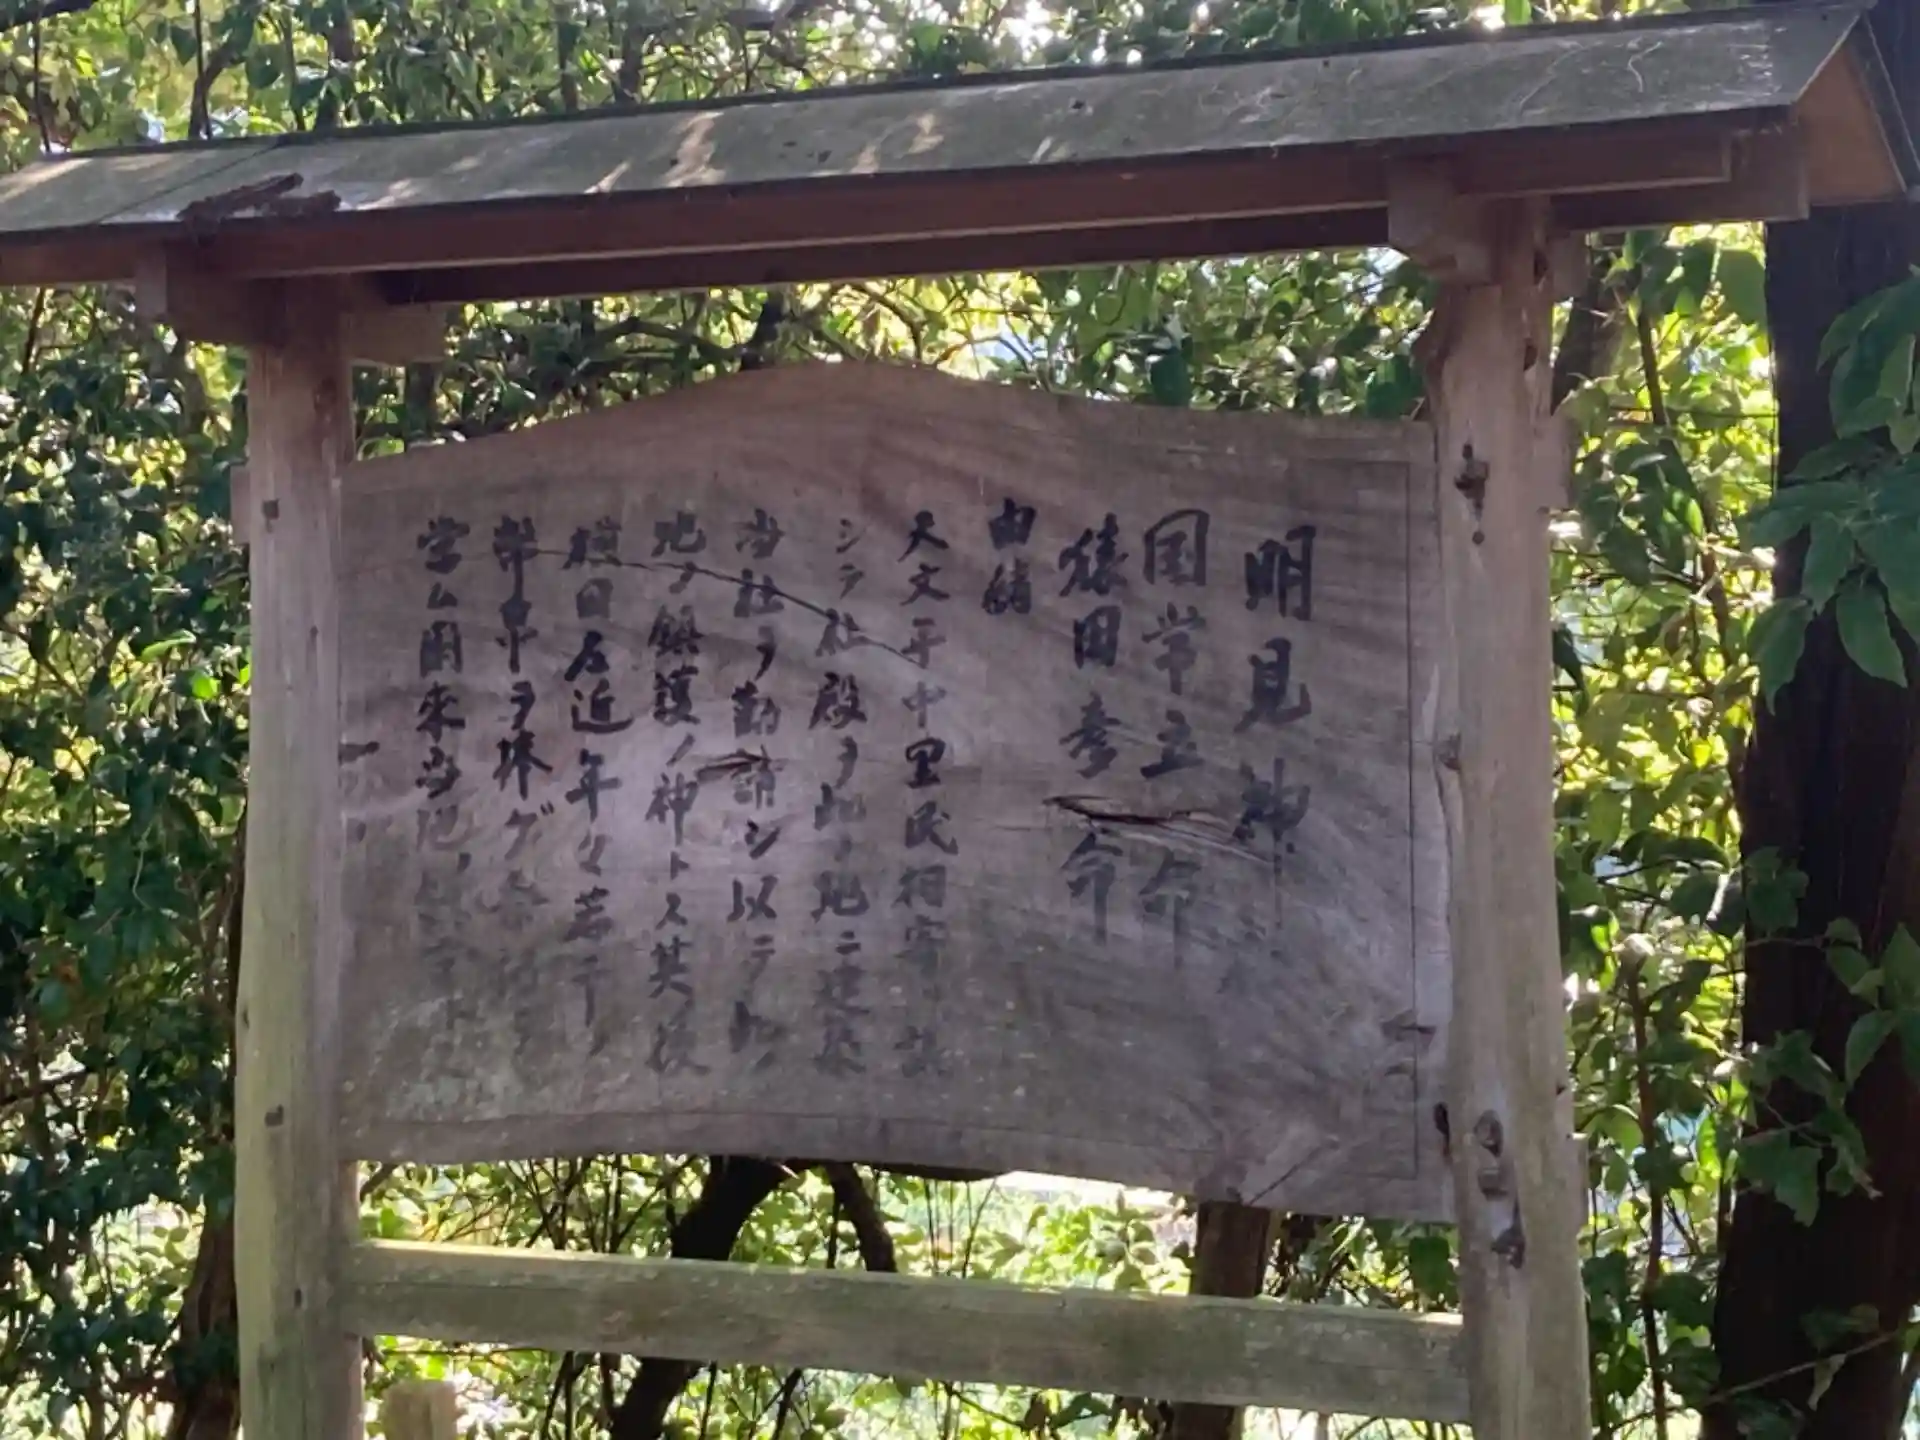 明見神社
国常立命
猿田彦命
由緒
天文年中里民相寄
シテ社殿ヲ此ノ地ニ建築
当社ヲ勧請シ以テ此ノ
地ノ鎮護ノ神トス其後
横田左近年々若干ノ
幣帛ヲ捧ゲ
学ム困来当